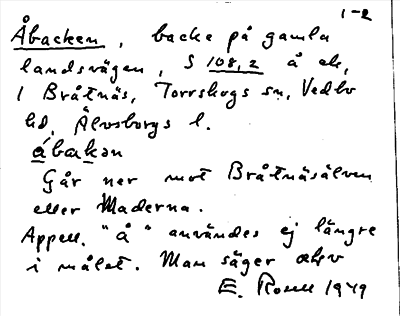 1-2
Åbacken, backe på gamla
landsvägen, S 108,2 å ek,
i Bråtnäs, Torrskogs sn, Vedbo
hd, Älvsborgs l.
åbakən
Går ner mot Bråtnäsälven
eller Maderna.
Appell. "å" användes ej längre
i målet. Man säger älv
E. Rosell 1949